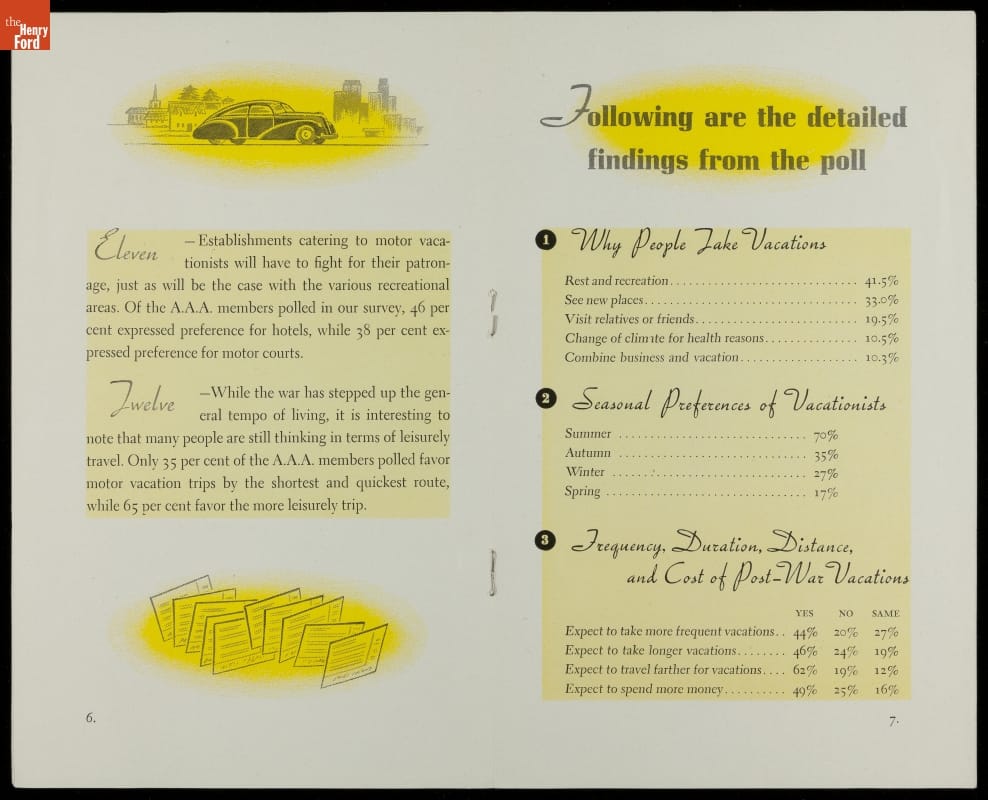 the
Henry
Ford
Eleven — Establishments catering to motor vaca-
tionists will have to fight for their patron-
age, just as will be the case with the various recreational
areas. Of the A.A.A. members polled in our survey, 46 per
cent expressed preference for hotels, while 38 per cent ex-
pressed preference for motor courts.
Twelve —While the war has stepped up the gen-
eral tempo of living, it is interesting to
note that many people are still thinking in terms of leisurely
travel. Only 35 per cent of the A.A.A. members polled favor
motor vacation trips by the shortest and quickest route,
while 65 per cent favor the more leisurely trip.
6.
Following are the detailed
findings from the poll
1 Why People Take Vacations
Rest and recreation............................ 41.5%
See new places................................ 33.0%
Visit relatives or friends........................ 19.5%
Change of climate for health reasons.............. 10.5%
Combine business and vacation.................. 10.3%
2 Seasonal Preferences of Vacationists
Summer ............................ 70%
Autumn ............................ 35%
Winter ............................. 27%
Spring .............................. 17%
3 Frequency, Duration, Distance,
and Cost of Post-War Vacations
YES NO SAME
Expect to take more frequent vacations.. 44% 20% 27%
Expect to take longer vacations........ 46% 24% 19%
Expect to travel farther for vacations.... 62% 19% 12%
Expect to spend more money.......... 49% 25% 16%
7.